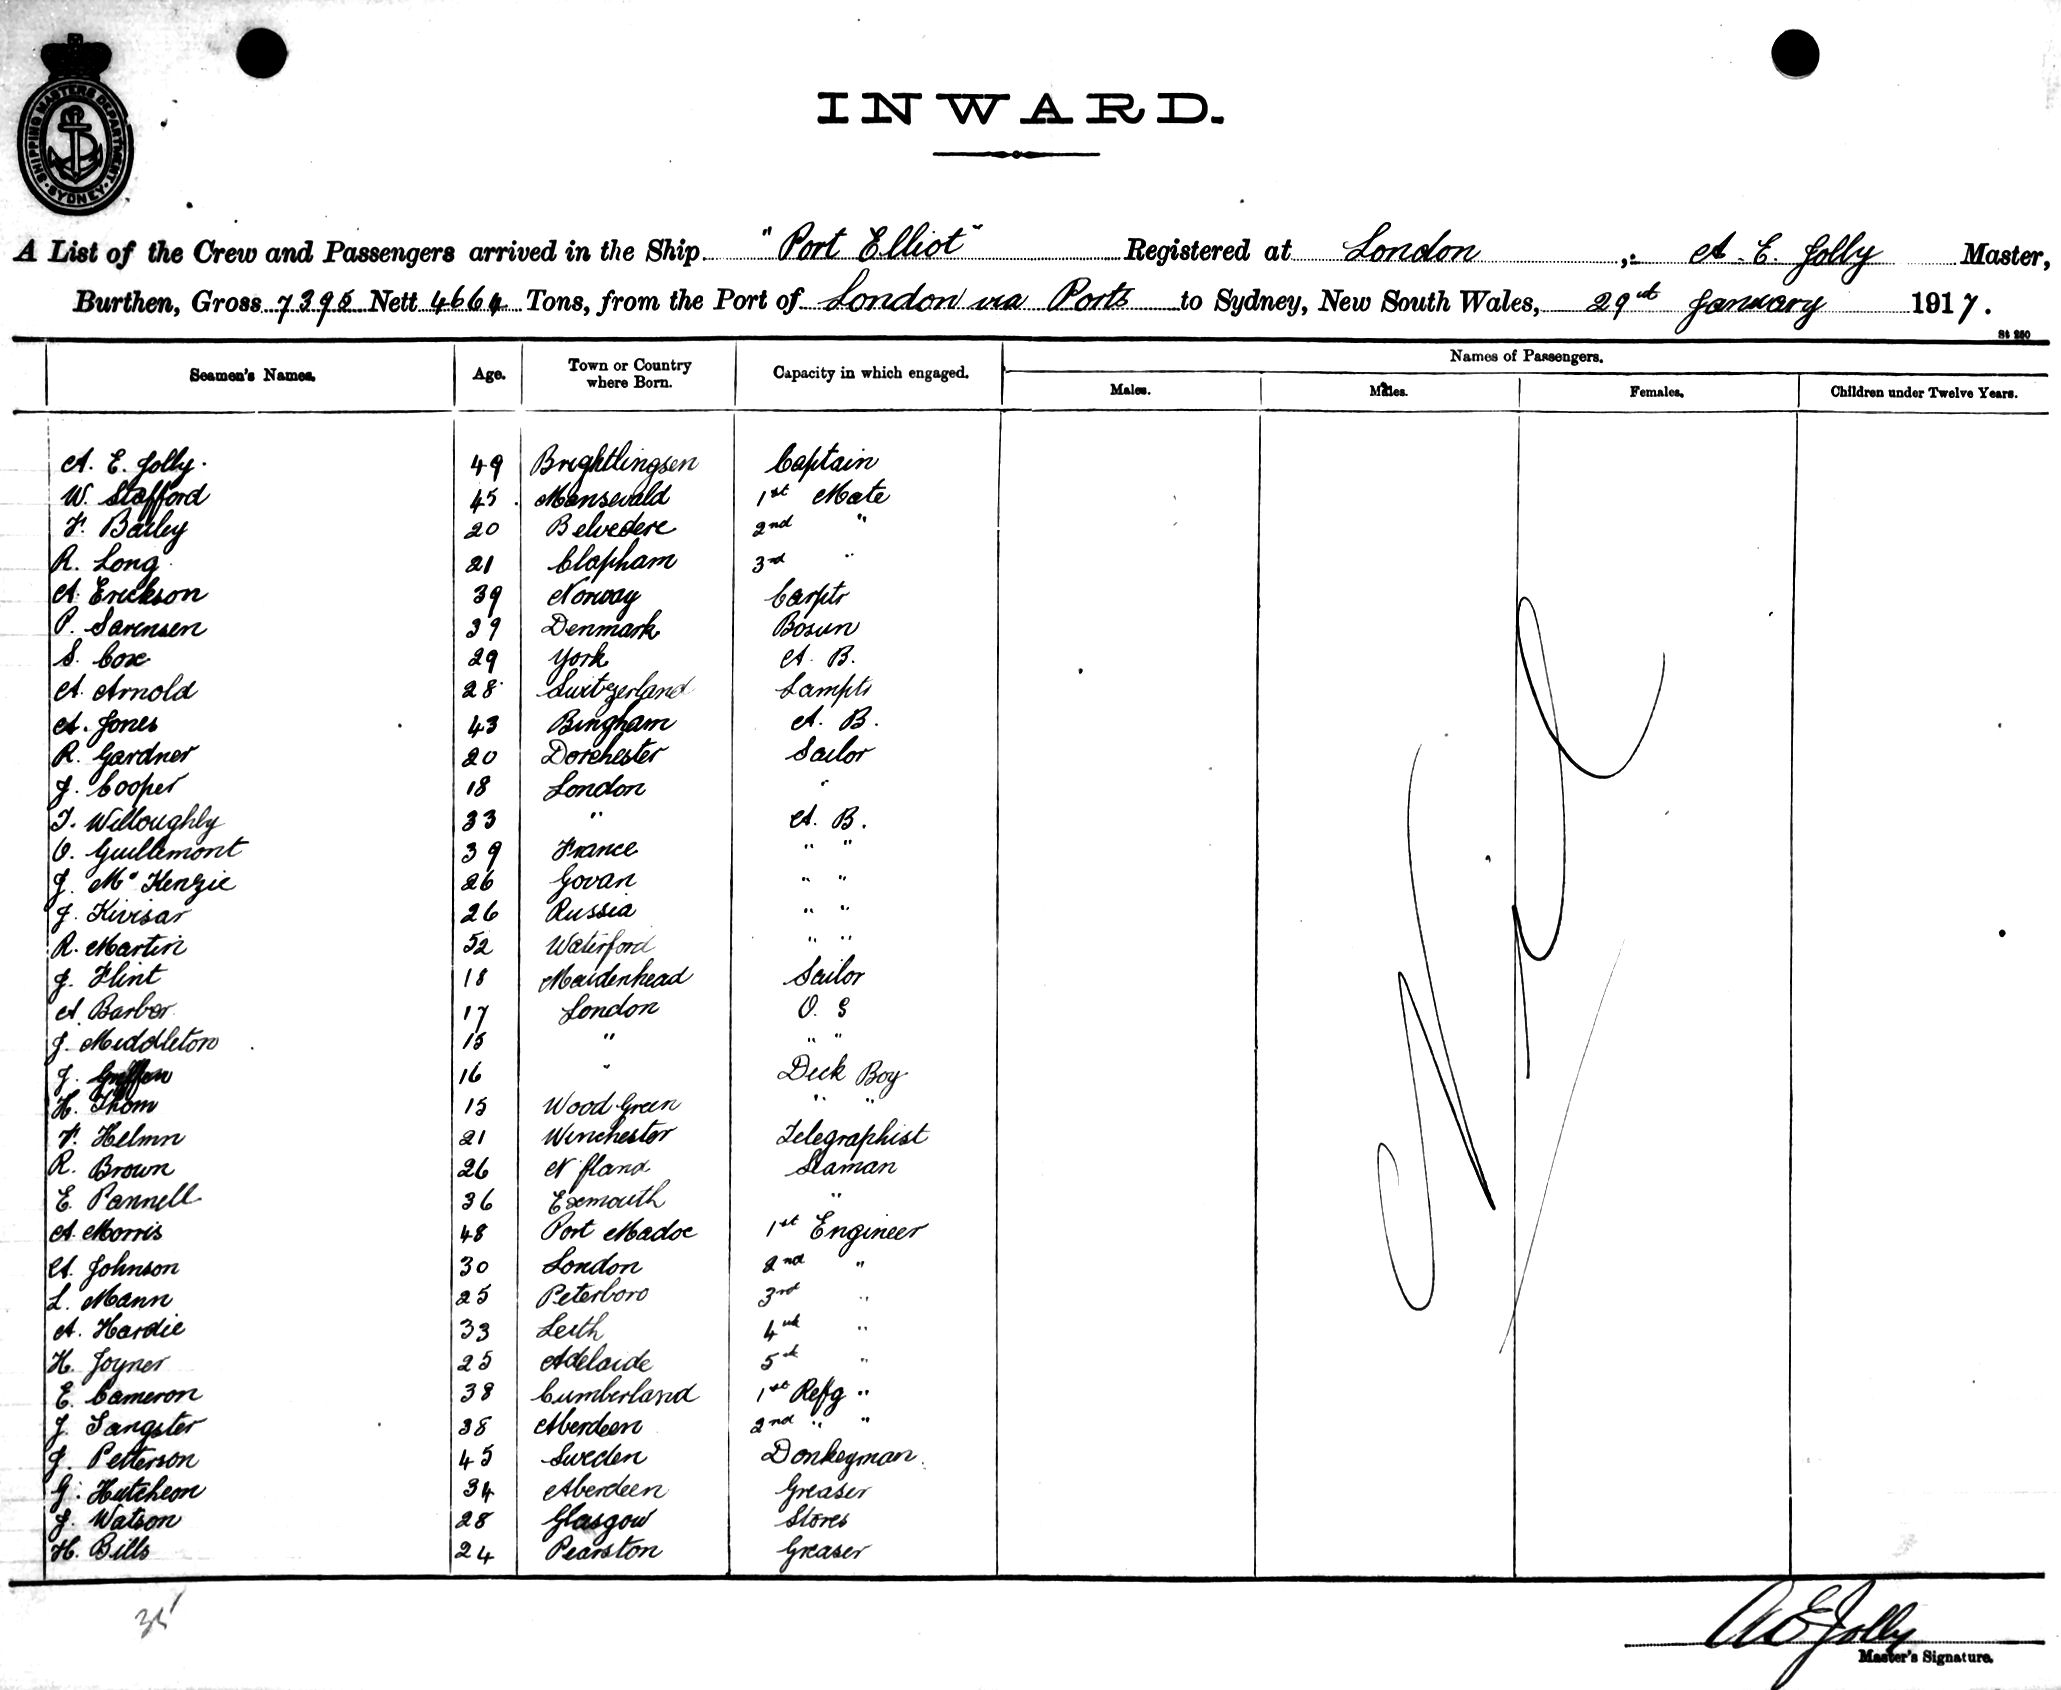 SHIPPING MASTERS DEPARTMENT · SYDNEY ·
INWARD.
A List of the Crew and Passengers arrived in the Ship "Port Elliot" Registered at London ,: A. E. Jolly Master,
Burthen, Gross 7395 Nett 4664 Tons, from the Port of London via Ports to Sydney, New South Wales, 29th January 1917.
St 250
Seamen's Names. Age. Town or Country where Born. Capacity in which engaged. Names of Passengers.
Males. Males. Females. Children under Twelve Years.
A. E. Jolly. 49 Brightlingsen Captain
W. Stafford 45 Mansewald 1st Mate
F. Bailey 20 Belvedere 2nd "
R. Long 21 Clapham 3rd "
A. Erickson 39 Norway Carptr
P. Sorensen 39 Denmark Bosun
S. Cox 29 York A. B.
A. Arnold 28 Switzerland Lamptr
A. Jones 43 Bingham A. B.
R. Gardner 20 Dorchester Sailor
J. Cooper 18 London "
T. Willoughly 33 " A. B.
O. Guillemont 39 France " "
J. McKenzie 26 Govan " "
J. Kivisar 26 Russia " "
R. Martin 52 Waterford " "
J. Flint 18 Maidenhead Sailor
A. Barber 17 London O. S
J. Middleton 15 " " "
J. Griffen 16 " Deck Boy
H. Thom 15 Wood Green " "
F. Helmn 21 Winchester Telegraphist
R. Brown 26 N'fland Seaman
E. Pannell 36 Exmouth "
A. Morris 48 Port Madoc 1st Engineer
A. Johnson 30 London 2nd "
L. Mann 25 Peterboro 3rd "
A. Hardie 33 Leith 4th "
H. Joyner 25 Adelaide 5th "
E. Cameron 38 Cumberland 1st Refg "
J. Sangster 38 Aberdeen 2nd " "
J. Petterson 45 Sweden Donkeyman.
G. Hutcheon 34 Aberdeen Greaser
J. Watson 28 Glasgow Stores
H. Bills 24 Pearston Greaser
Nil
35
A E Jolly
Master's Signature.